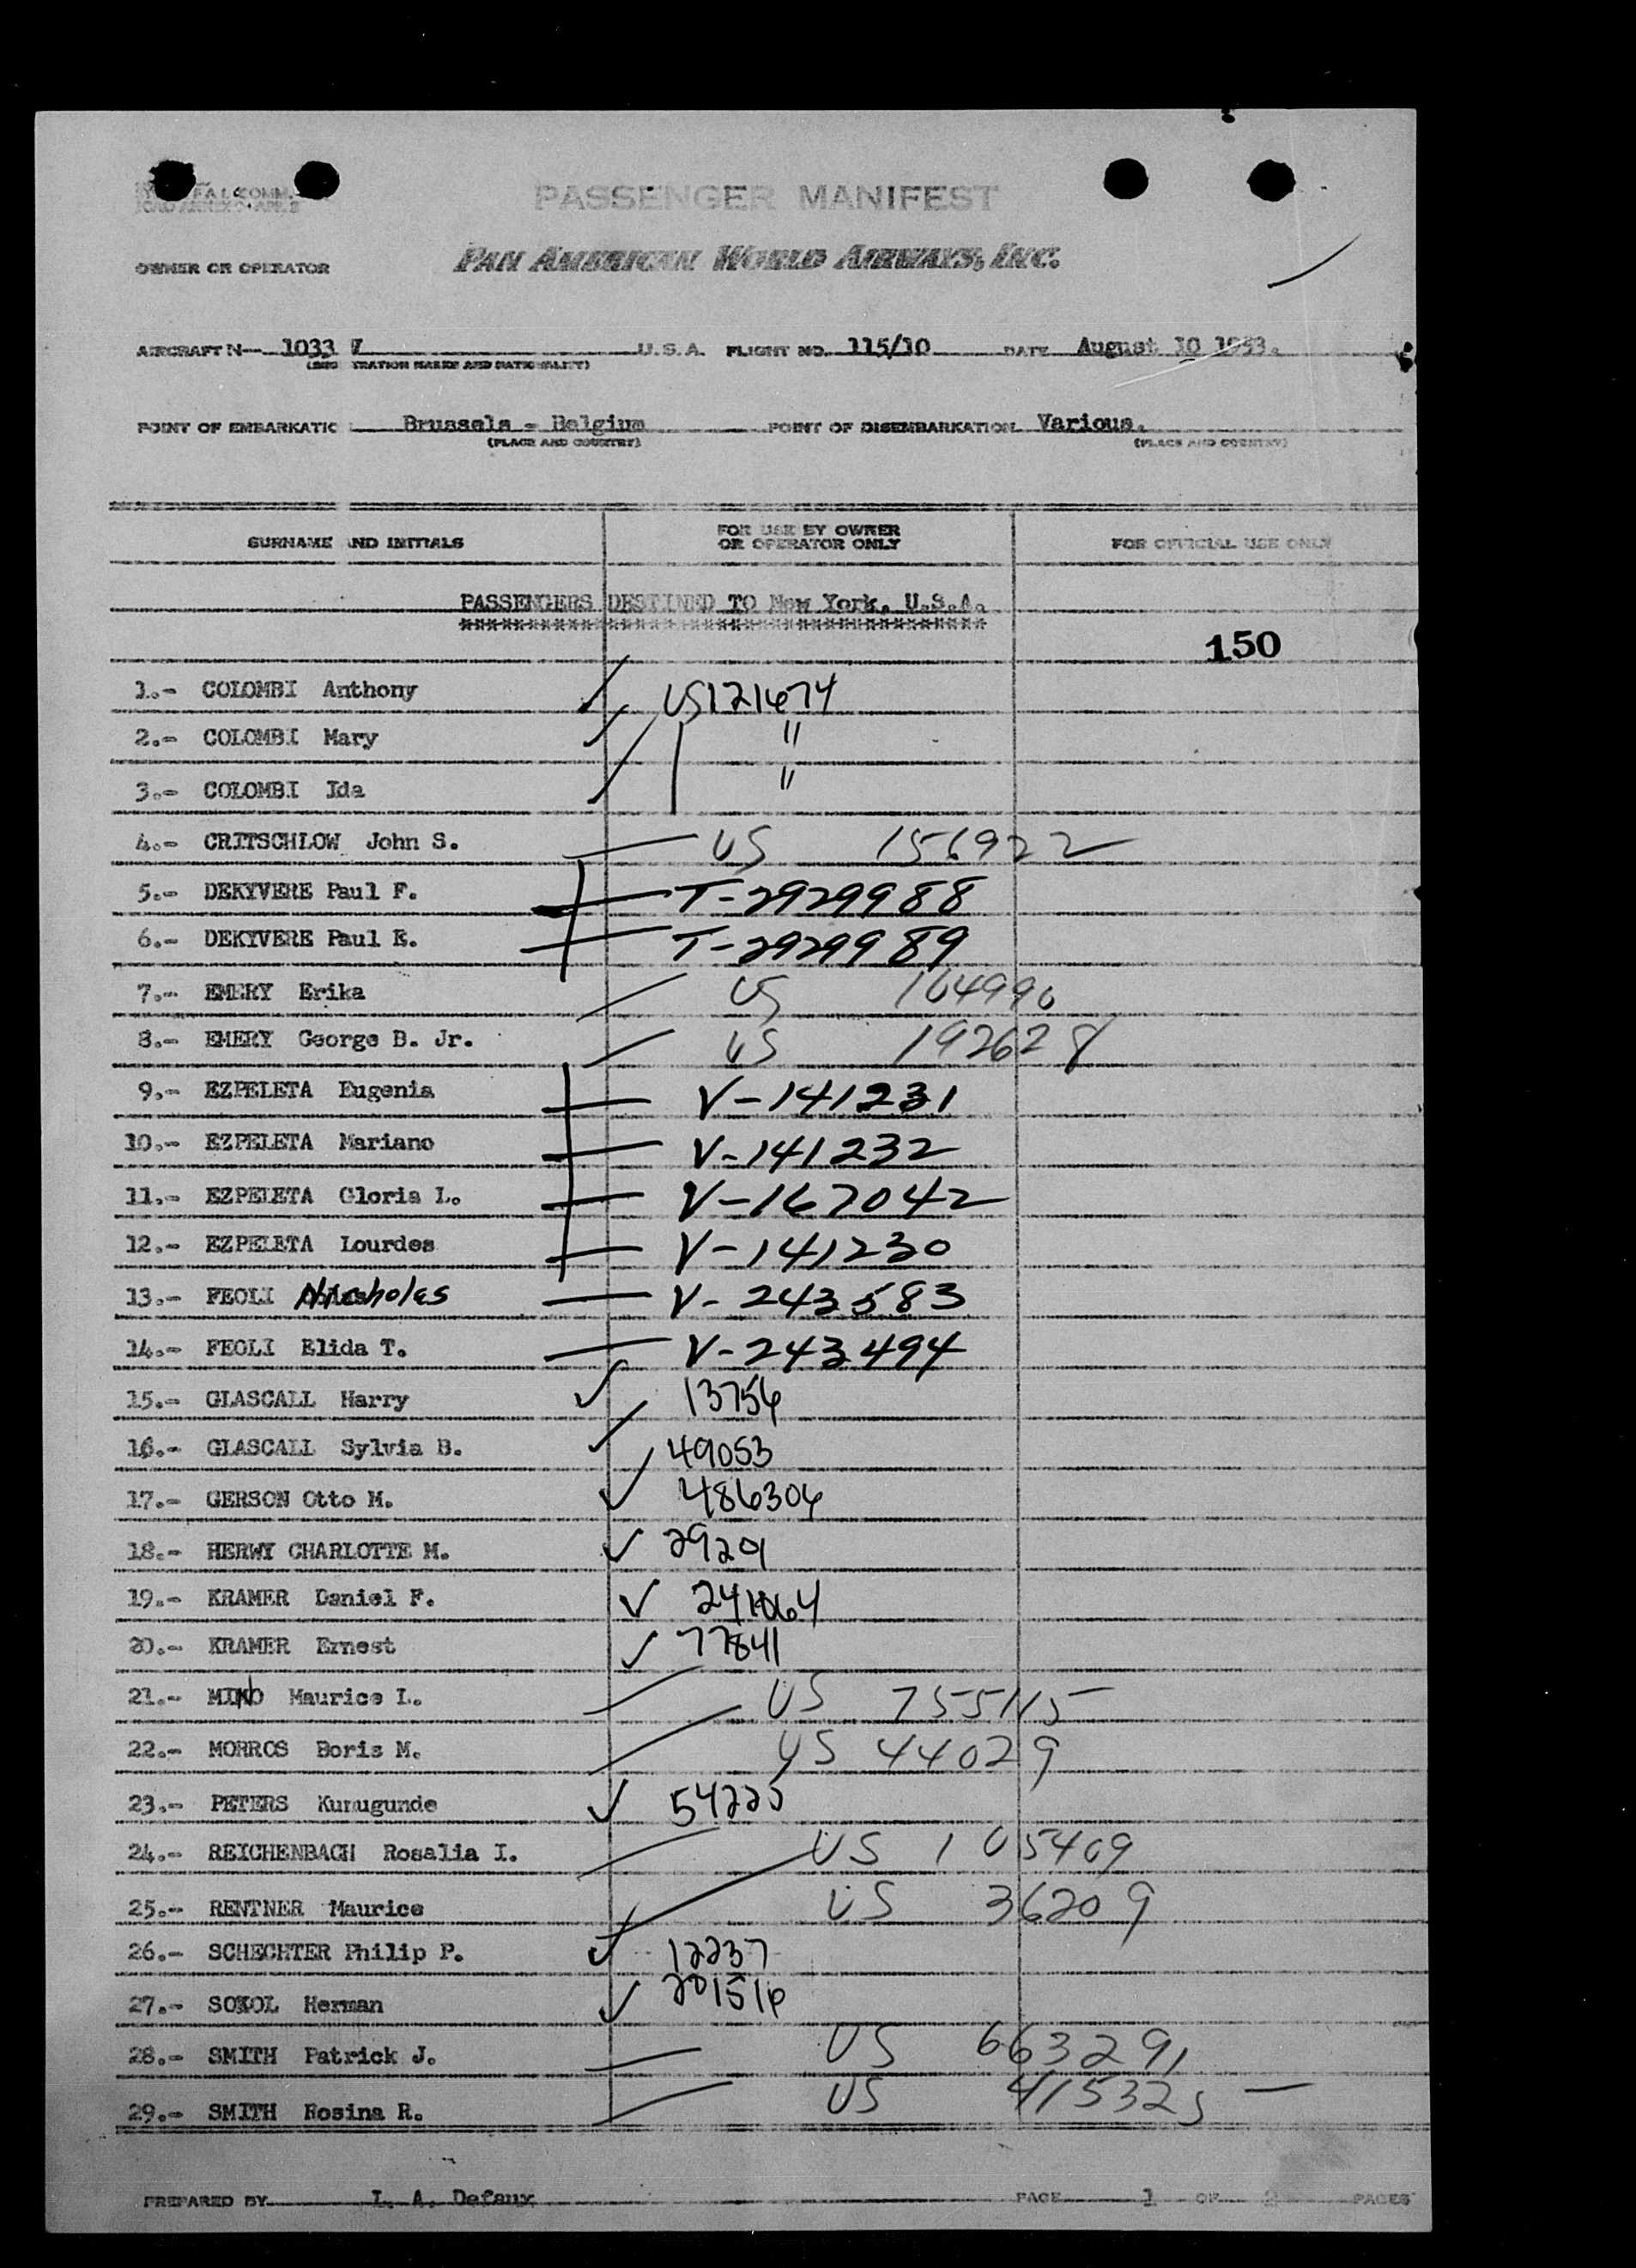 PASSENGER MANIFEST
OWNER OR OPERATOR PAN AMERICAN WORLD AIRWAYS, INC.
AIRCRAFT N- 1033 V U.S.A. FLIGHT NO. 115/10 DATE August 10 1953.
POINT OF EMBARKATIO Brussels - Belgium POINT OF DISEMBARKATION Various.
(PLACE AND COUNTRY) (PLACE AND COUNTRY)
SURNAME AND INITIALS FOR USE BY OWNER OR OPERATOR ONLY FOR OFFICIAL USE ONLY
PASSENGERS DESTINED TO New York, U.S.A.
150
1.- COLOMBI Anthony US121674
2.- COLOMBI Mary "
3.- COLOMBI Ida "
4.- CRITSCHLOW John S. US 156922
5.- DEKYVERE Paul F. T-2929988
6.- DEKYVERE Paul E. T-2929989
7.- EMERY Erika US 164990
8.- EMERY George B. Jr. US 192628
9.- EZPELETA Eugenia V-141231
10.- EZPELETA Mariano V-141232
11.- EZPELETA Gloria L. V-167042
12.- EZPELETA Lourdes V-141230
13.- FEOLI Nicholas V-243583
14.- FEOLI Elida T. V-243494
15.- GLASCALL Harry 13756
16.- GLASCALL Sylvia B. 49053
17.- GERSON Otto M. 486306
18.- HERWY CHARLOTTE M. 29201
19.- KRAMER Daniel F.
20.- KRAMER Ernest 77841
21.- MINO Maurice L. US 755115
22.- MORROS Boris M. US 44029
23.- PETERS Kunugunde 54225
24.- REICHENBACH Rosalia I. US 105409
25.- RENTNER Maurice US 36209
26.- SCHECHTER Philip P. 12237
27.- SOKOL Herman 201516
28.- SMITH Patrick J. US 663291
29.- SMITH Rosina R. US 415325
PREPARED BY I. A. Defaux PAGE 1 OF 2 PAGES